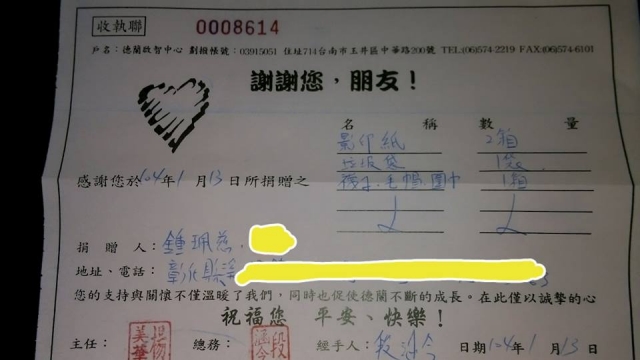 收執聯 0008614
戶名：德蘭啟智中心 劃撥帳號：03915051 住址714台南市玉井區中華路200號 TEL:(06)574-2219 FAX:(06)574-6101
謝謝您，朋友！
名稱 數量
影印紙 2箱
垃圾袋 1袋
襪子.毛帽.圍巾 1箱
感謝您於104年1月13日所捐贈之
捐贈人：鍾珮慈
地址、電話：彰化縣
您的支持與關懷不僅溫暖了我們，同時也促使德蘭不斷的成長。在此僅以誠摯的心
祝福您 平安、快樂！
主任： 總務： 經手人： 日期104年1月13日